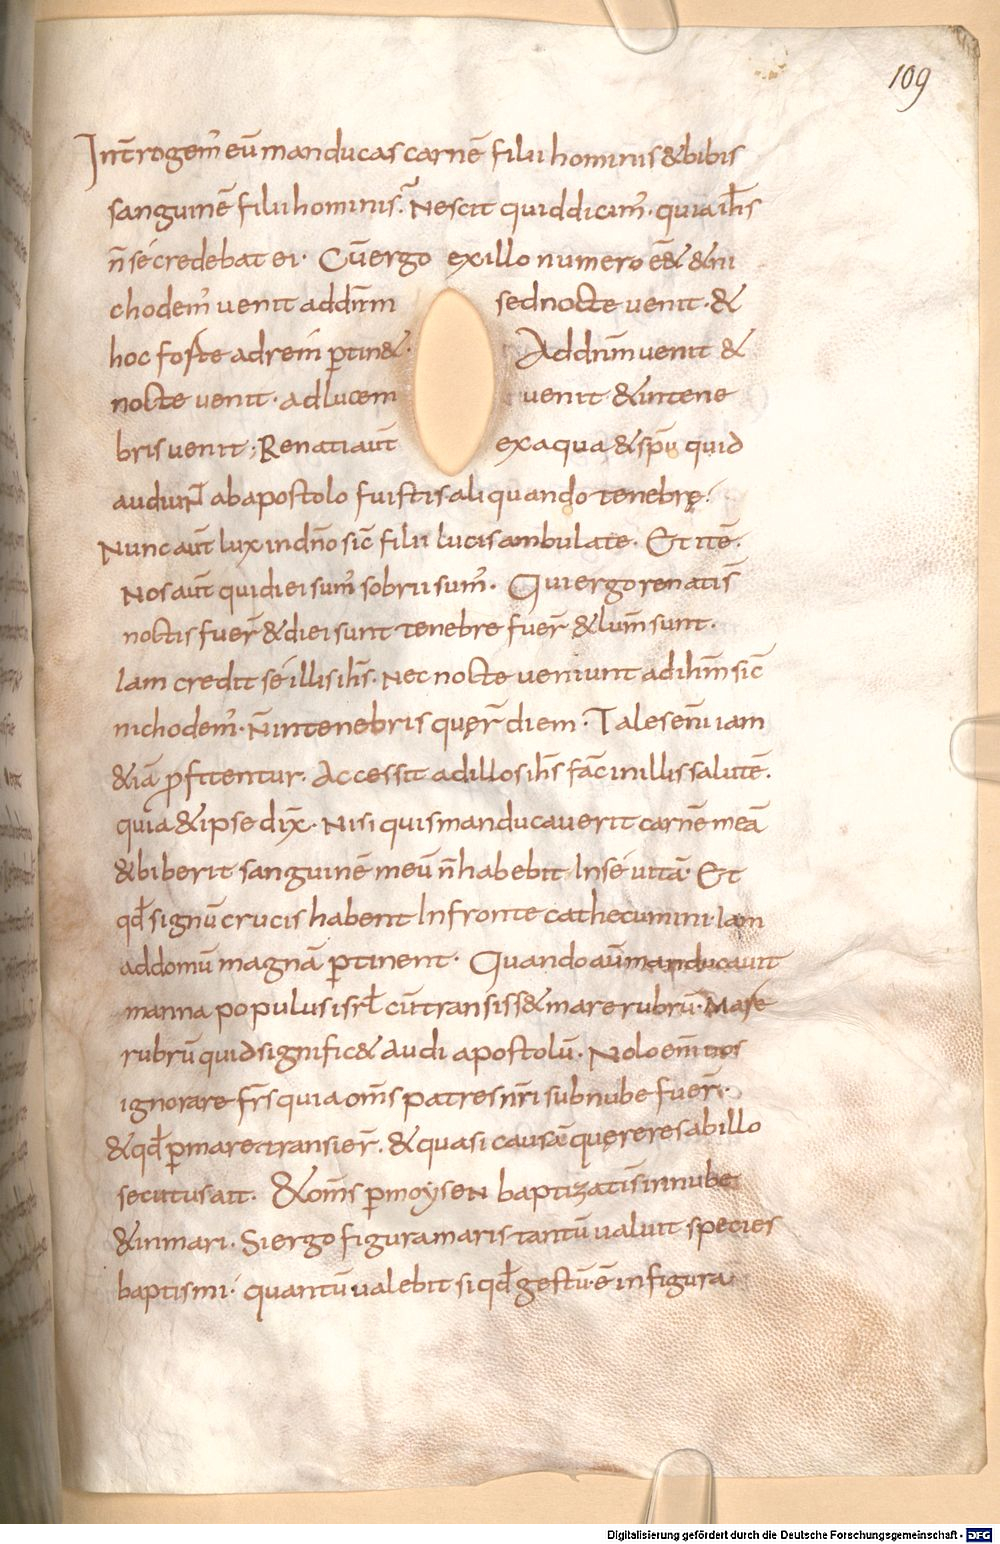 109
Int̄rogem᾽ eū manducas carnē filii hominis & bibis
sanguinē filii hominis? Nescit quid dicim᾽· quia ih̄s
n̄ sé credebat ei· Cū ergo ex illo numero ēē& & ni
chodem᾽ venit ad dn̄m sed nocte venit· &
hoc foste ad rem ptin&· Ad dn̄m venit &
nocte venit· ad lucem venit & in tene
bris venit; Renati aut̄ ex aqua & spū quid
audiunt ab apostolo fuistis aliquando tenebrę·
Nunc aut̄ lux in dn̄o sic̄ filii lucis ambulate· Et itē·
Nos aut̄ qui diei sum᾽ sobrii sum᾽· Qui ergo renati s̄
noctis fuer̄ & diei sunt tenebre fuer̄ & lum̄ sunt·
Iam credit sé illis ih̄s· Nec nocte veniunt ad ih̄m sic̄
nichodem᾽· N̄ in tenebris quęr̄ diem· Tales eni iam
&iā pfitentur· Accessit ad illos ih̄s fac̄ in illis salutē·
quia & ipse dix̄· Nisi quis manducaverit carnē meā
& biberit sanguinē meū n̄ habebit in sé vitā· Et
qd̄ signū crucis habent in fronte cathecumini· iam
ad domū magnā ptinent· Quando aū manducavit
manna populus isrl̄ cū transiss& mare rubrū· Mare
rubrū quid signific& audi apostolū· Nolo eni vos
ignorare frs̄ quia om̄s patres nr̄i sub nube fuer̄·
& qd̄ p mare transier̄· & quasi causā quęreres ab illo
secutus ait· & om̄s p moysen baptizati s̄ in nube
& in mari· Si ergo figura maris tantū valuit species
baptismi· quantū valebit si qd̄ gestū ē in figura
Digitalisierung gefördert durch die Deutsche Forschungsgemeinschaft - DFG